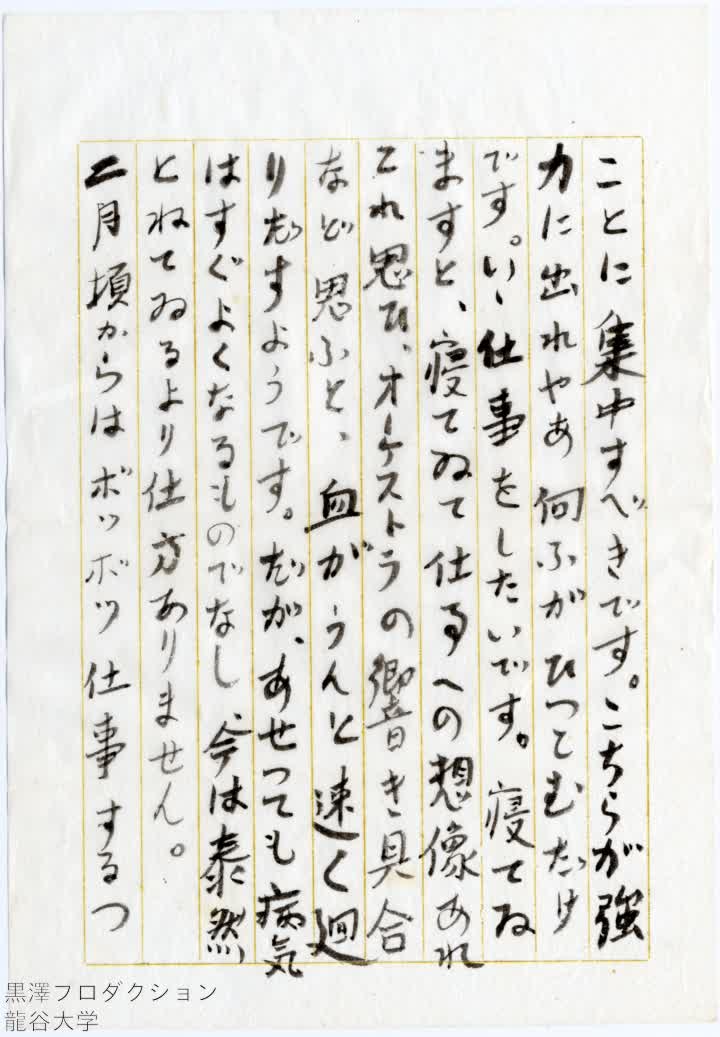 ことに集中すべきです。こちらが強
力に出れやあ向ふがひつこむだけ
です。いゝ仕事をしたいです。寝てゐ
ますと、寝てゐて仕事への想像あれ
これ思ひ、オーケストラの響き具合
など思ふと、血がうんと速く廻
りだすようです。だが、あせつても病気
はすぐよくなるものでなし、今は泰然
とねてゐるより仕方ありません。
二月頃からはボツボツ仕事するつ
黒澤プロダクション
龍谷大学